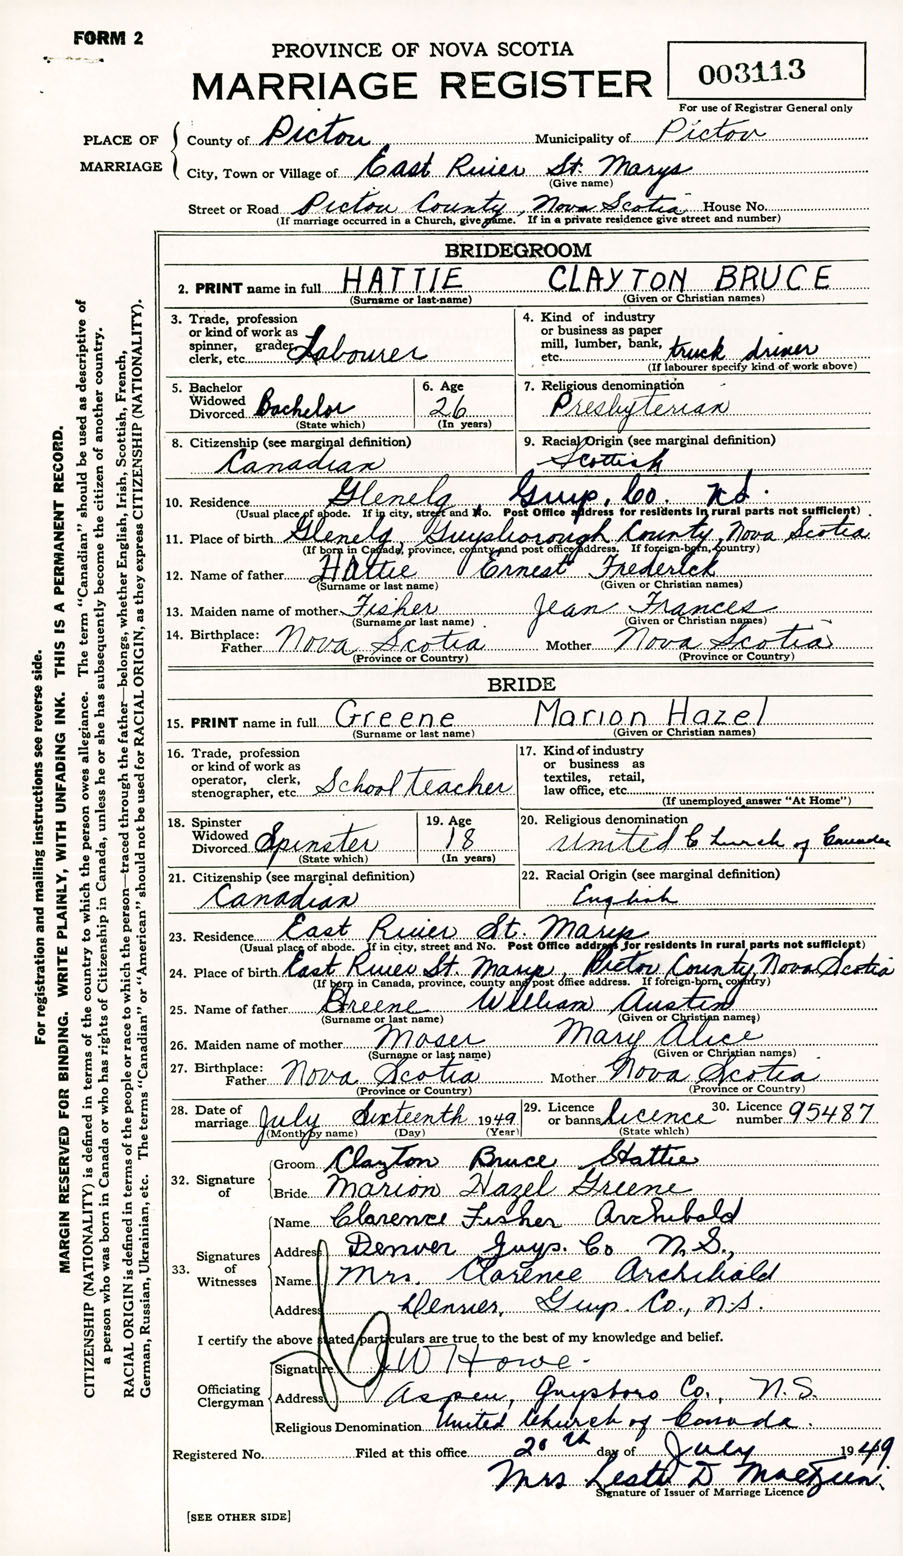 FORM 2
PROVINCE OF NOVA SCOTIA
MARRIAGE REGISTER
003113
For use of Registrar General only
PLACE OF MARRIAGE
County of Pictou Municipality of Pictou
City, Town or Village of East River St. Marys
(Give name)
Street or Road Pictou County, Nova Scotia House No.
(If marriage occurred in a Church, give name. If in a private residence give street and number)
BRIDEGROOM
2. PRINT name in full HATTIE CLAYTON BRUCE
(Surname or last-name) (Given or Christian names)
3. Trade, profession or kind of work as spinner, grader, clerk, etc. Labourer
4. Kind of industry or business as paper mill, lumber, bank, etc. truck driver
(If labourer specify kind of work above)
5. Bachelor Widowed Divorced Bachelor
(State which)
6. Age 26
(In years)
7. Religious denomination
Presbyterian
8. Citizenship (see marginal definition)
Canadian
9. Racial Origin (see marginal definition)
Scottish
10. Residence Glenelg Guys. Co. N.S.
(Usual place of abode. If in city, street and No. Post Office address for residents in rural parts not sufficient)
11. Place of birth Glenelg, Guysborough County, Nova Scotia
(If born in Canada, province, county and post office address. If foreign-born, country)
12. Name of father Hattie Ernest Frederick
(Surname or last name) (Given or Christian names)
13. Maiden name of mother Fisher Jean Frances
(Surname or last name) (Given or Christian names)
14. Birthplace: Father Nova Scotia Mother Nova Scotia
(Province or Country) (Province or Country)
BRIDE
15. PRINT name in full Greene Marion Hazel
(Surname or last name) (Given or Christian names)
16. Trade, profession or kind of work as operator, clerk, stenographer, etc. School teacher
17. Kind of industry or business as textiles, retail, law office, etc.
(If unemployed answer "At Home")
18. Spinster Widowed Divorced Spinster
(State which)
19. Age 18
(In years)
20. Religious denomination
United Church of Canada
21. Citizenship (see marginal definition)
Canadian
22. Racial Origin (see marginal definition)
English
23. Residence East River St. Marys
(Usual place of abode. If in city, street and No. Post Office address for residents in rural parts not sufficient)
24. Place of birth East River St. Marys, Pictou County, Nova Scotia
(If born in Canada, province, county and post office address. If foreign-born, country)
25. Name of father Greene William Austin
(Surname or last name) (Given or Christian names)
26. Maiden name of mother Moser Mary Alice
(Surname or last name) (Given or Christian names)
27. Birthplace: Father Nova Scotia Mother Nova Scotia
(Province or Country) (Province or Country)
28. Date of marriage July Sixteenth 1949
(Month by name) (Day) (Year)
29. Licence or banns licence
(State which)
30. Licence number 95487
32. Signature of
Groom Clayton Bruce Hattie
Bride Marion Hazel Greene
33. Signatures of Witnesses
Name Clarence Fisher Archibald
Address Denver Guys. Co N.S.
Name Mrs. Clarence Archibald
Address Denver, Guys. Co., N.S.
I certify the above stated particulars are true to the best of my knowledge and belief.
Officiating Clergyman
Signature J W Howe
Address Aspen, Guysboro Co., N.S.
Religious Denomination United Church of Canada.
Registered No. Filed at this office 20th day of July 1949
Mrs D.
Signature of Issuer of Marriage Licence
[SEE OTHER SIDE]
For registration and mailing instructions see reverse side.
MARGIN RESERVED FOR BINDING. WRITE PLAINLY, WITH UNFADING INK. THIS IS A PERMANENT RECORD.
CITIZENSHIP (NATIONALITY) is defined in terms of the country to which the person owes allegiance. The term "Canadian" should be used as descriptive of
a person who was born in Canada or who has rights of Citizenship in Canada, unless he or she has subsequently become the citizen of another country.
RACIAL ORIGIN is defined in terms of the people or race to which the person—traced through the father—belongs, whether English, Irish, Scottish, French,
German, Russian, Ukrainian, etc. The terms "Canadian" or "American" should not be used for RACIAL ORIGIN, as they express CITIZENSHIP (NATIONALITY).